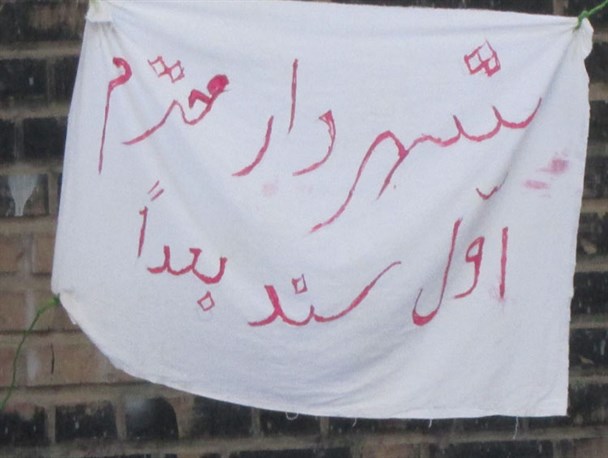 شهردار محترم
اوّل سند بعداً